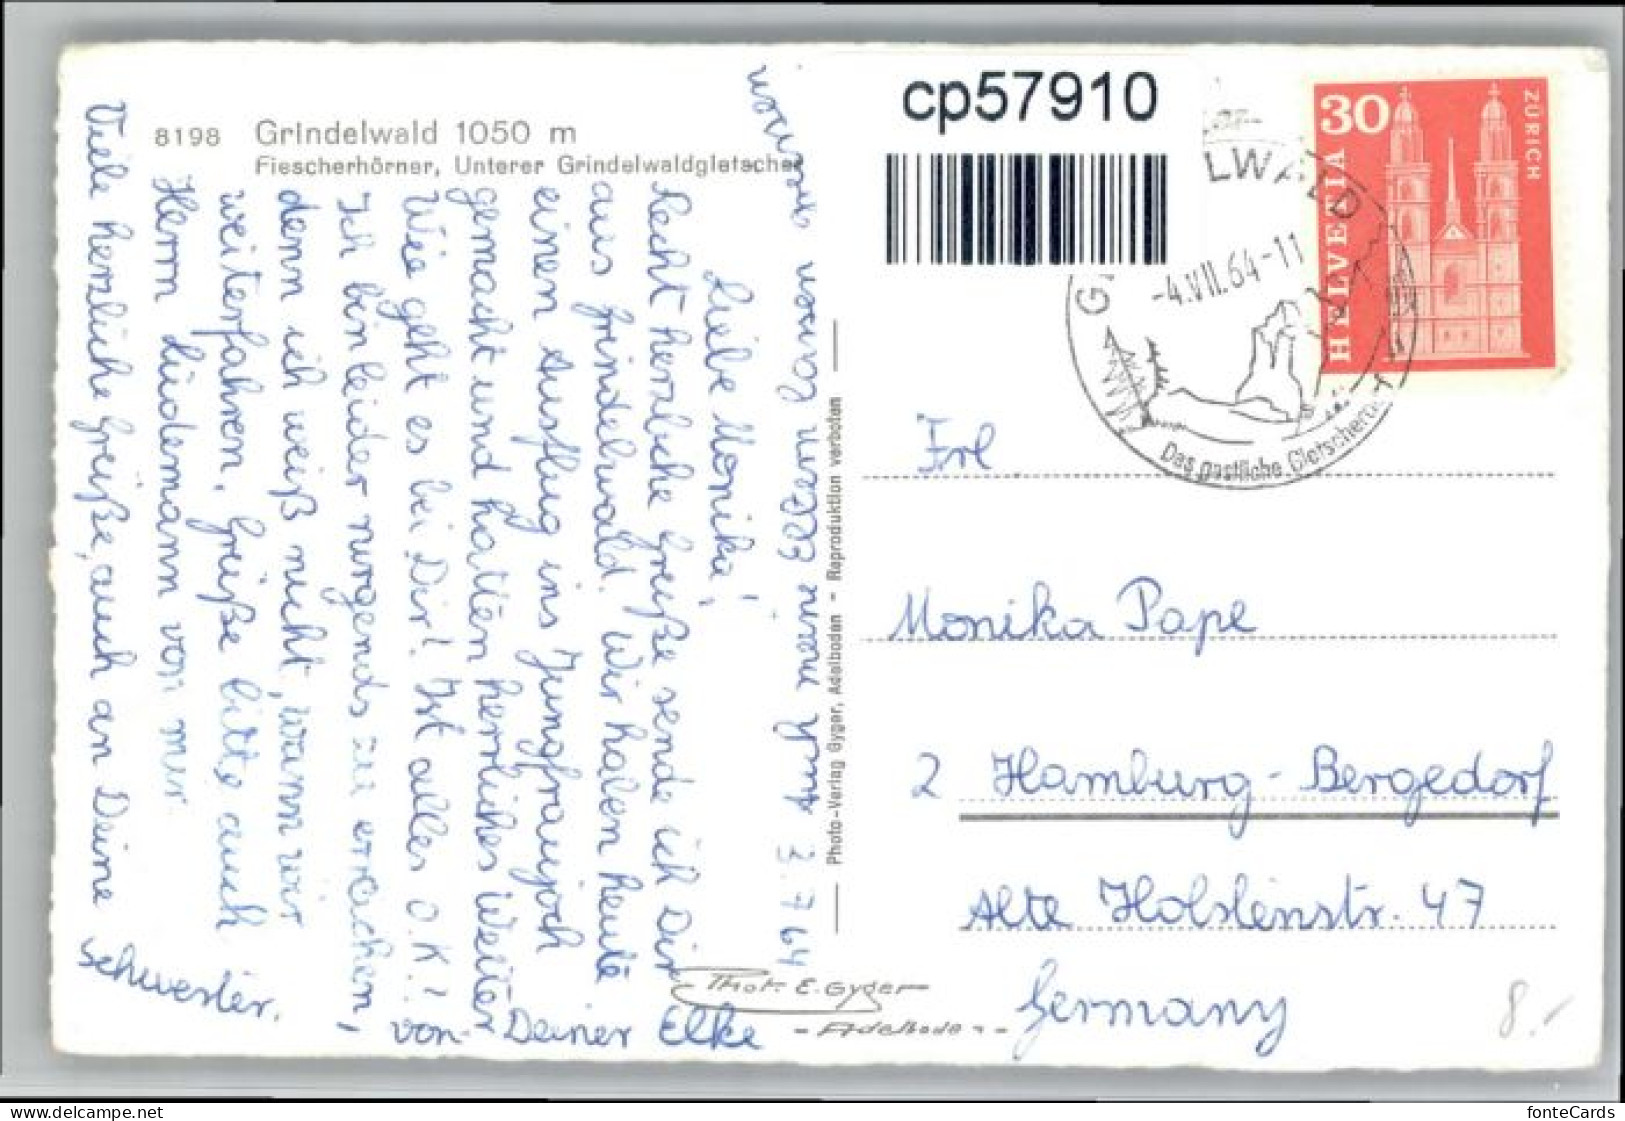 cp57910
8198 Grindelwald 1050 m
Fiescherhörner, Unterer Grindelwaldgletscher
30
HELVETIA
ZÜRICH
LWALD
-4.VII.64-11
Das gastliche Gletscherdorf
3.7.64
Liebe Monika!
Recht herzliche Grüße sende ich Dir
aus Grindelwald. Wir haben heute
einen Ausflug ins Jungfraujoch
gemacht und hatten herrliches Wetter.
Wie geht es bei Dir? Ist alles O.K.?
Ich bin leider nirgends zu erreichen,
denn ich weiß nicht, wann wir
weiterfahren. Grüße bitte auch
Herrn Lüdemann von mir.
Viele herzliche Grüße, auch an Deine
Schwester.
von Deiner Elke
Auch meine Eltern lassen grüssen
Photo-Verlag Gyger, Adelboden - Reproduktion verboten
Phot. E. Gyger
- Adelboden -
Frl
Monika Pape
2 Hamburg-Bergedorf
Alte Holstenstr. 47
Germany
8.-
https://www.delcampe.net
fonteCards